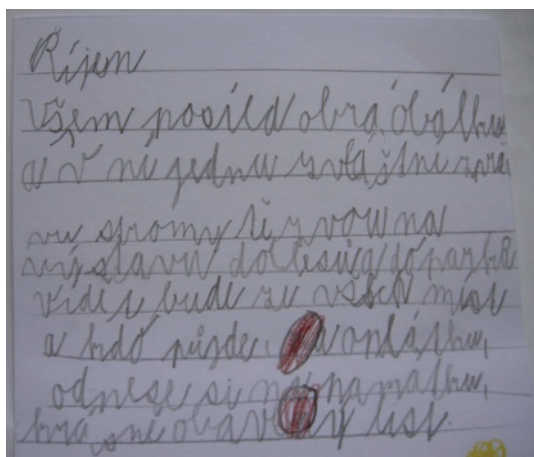 Říjen
Všem posílá obrá obálku
a v ní jednu zvláštní zprá
vu stromy ti zvou na
výstavu do lesů a do parků
vidět bude ze všech míst
a kdo půjde na oplátku,
odnese si na památku,
krásně obarvený list.